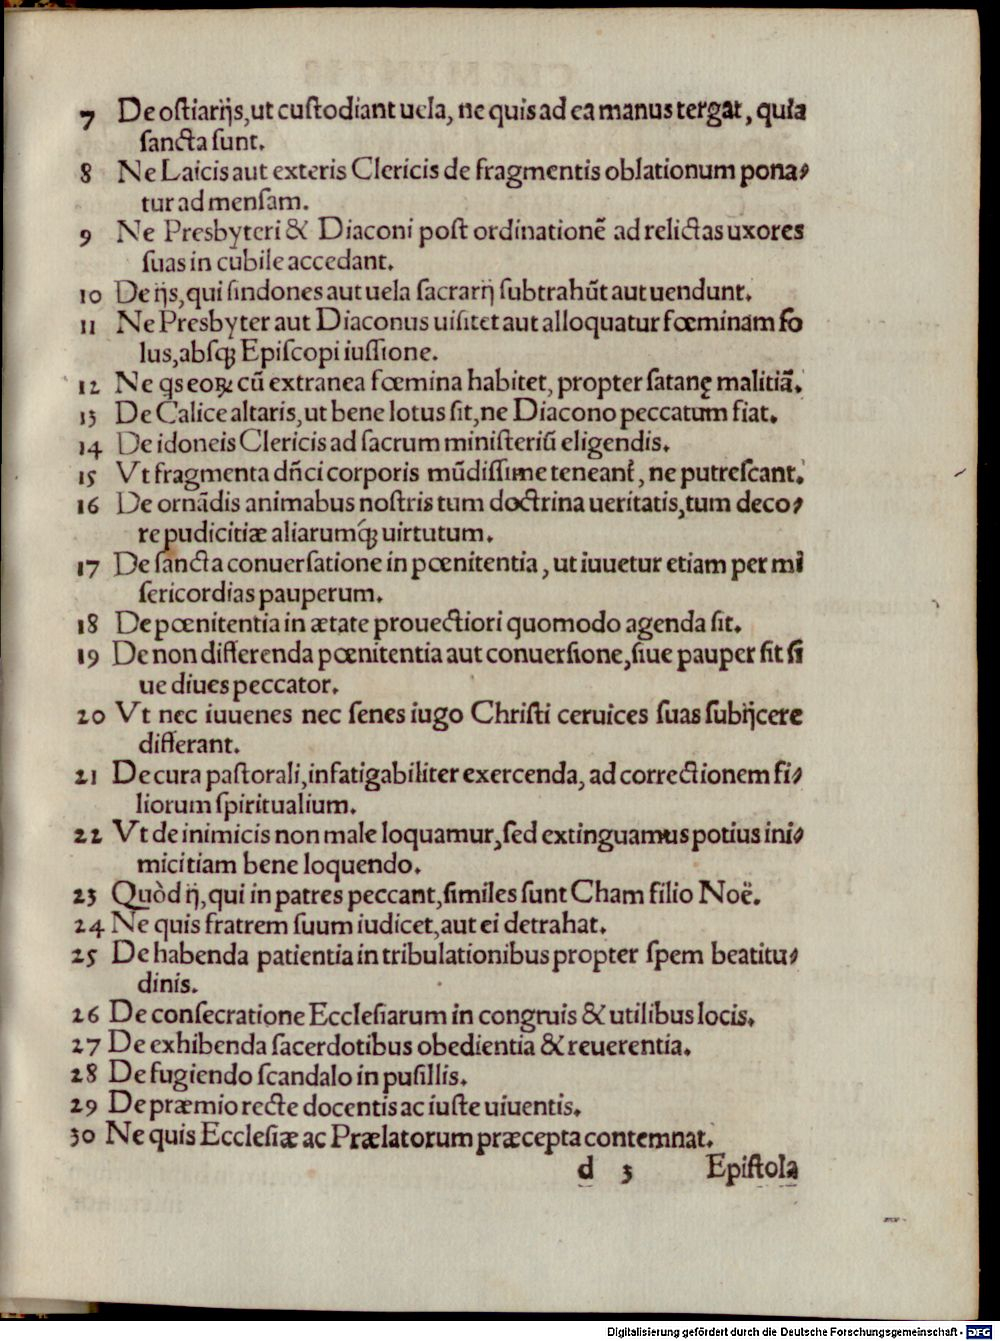 7 De ostiarijs, ut custodiant uela, ne quis ad ea manus tergat, quia
sancta sunt.
8 Ne Laicis aut exteris Clericis de fragmentis oblationum pona⸗
tur ad mensam.
9 Ne Presbyteri & Diaconi post ordinationē ad relictas uxores
suas in cubile accedant.
10 De ijs, qui sindones aut uela sacrarij subtrahūt aut uendunt.
11 Ne Presbyter aut Diaconus uisitet aut alloquatur fœminam so
lus, absqꝫ Episcopi iussione.
12 Ne qs eoꝝ cū extranea fœmina habitet, propter satanę malitiā.
13 De Calice altaris, ut bene lotus sit, ne Diacono peccatum fiat.
14 De idoneis Clericis ad sacrum ministeriū eligendis.
15 Vt fragmenta dñci corporis mūdissime teneant᷑, ne putrescant.
16 De ornādis animabus nostris tum doctrina ueritatis, tum deco⸗
re pudicitiæ aliarumq́ꝫ uirtutum.
17 De sancta conuersatione in pœnitentia, ut iuuetur etiam per mi
sericordias pauperum.
18 De pœnitentia in ætate prouectiori quomodo agenda sit.
19 De non differenda pœnitentia aut conuersione, siue pauper sit si
ue diues peccator.
20 Vt nec iuuenes nec senes iugo Christi ceruices suas subijcere
differant.
21 De cura pastorali, infatigabiliter exercenda, ad correctionem fi⸗
liorum spiritualium.
22 Vt de inimicis non male loquamur, sed extinguamus potius ini⸗
micitiam bene loquendo.
23 Quòd ij, qui in patres peccant, similes sunt Cham filio Noë.
24 Ne quis fratrem suum iudicet, aut ei detrahat.
25 De habenda patientia in tribulationibus propter spem beatitu⸗
dinis.
26 De consecratione Ecclesiarum in congruis & utilibus locis.
27 De exhibenda sacerdotibus obedientia & reuerentia.
28 De fugiendo scandalo in pusillis.
29 De præmio recte docentis ac iuste uiuentis.
30 Ne quis Ecclesiæ ac Prælatorum præcepta contemnat.
d 3 Epistola
Digitalisierung gefördert durch die Deutsche Forschungsgemeinschaft - DFG